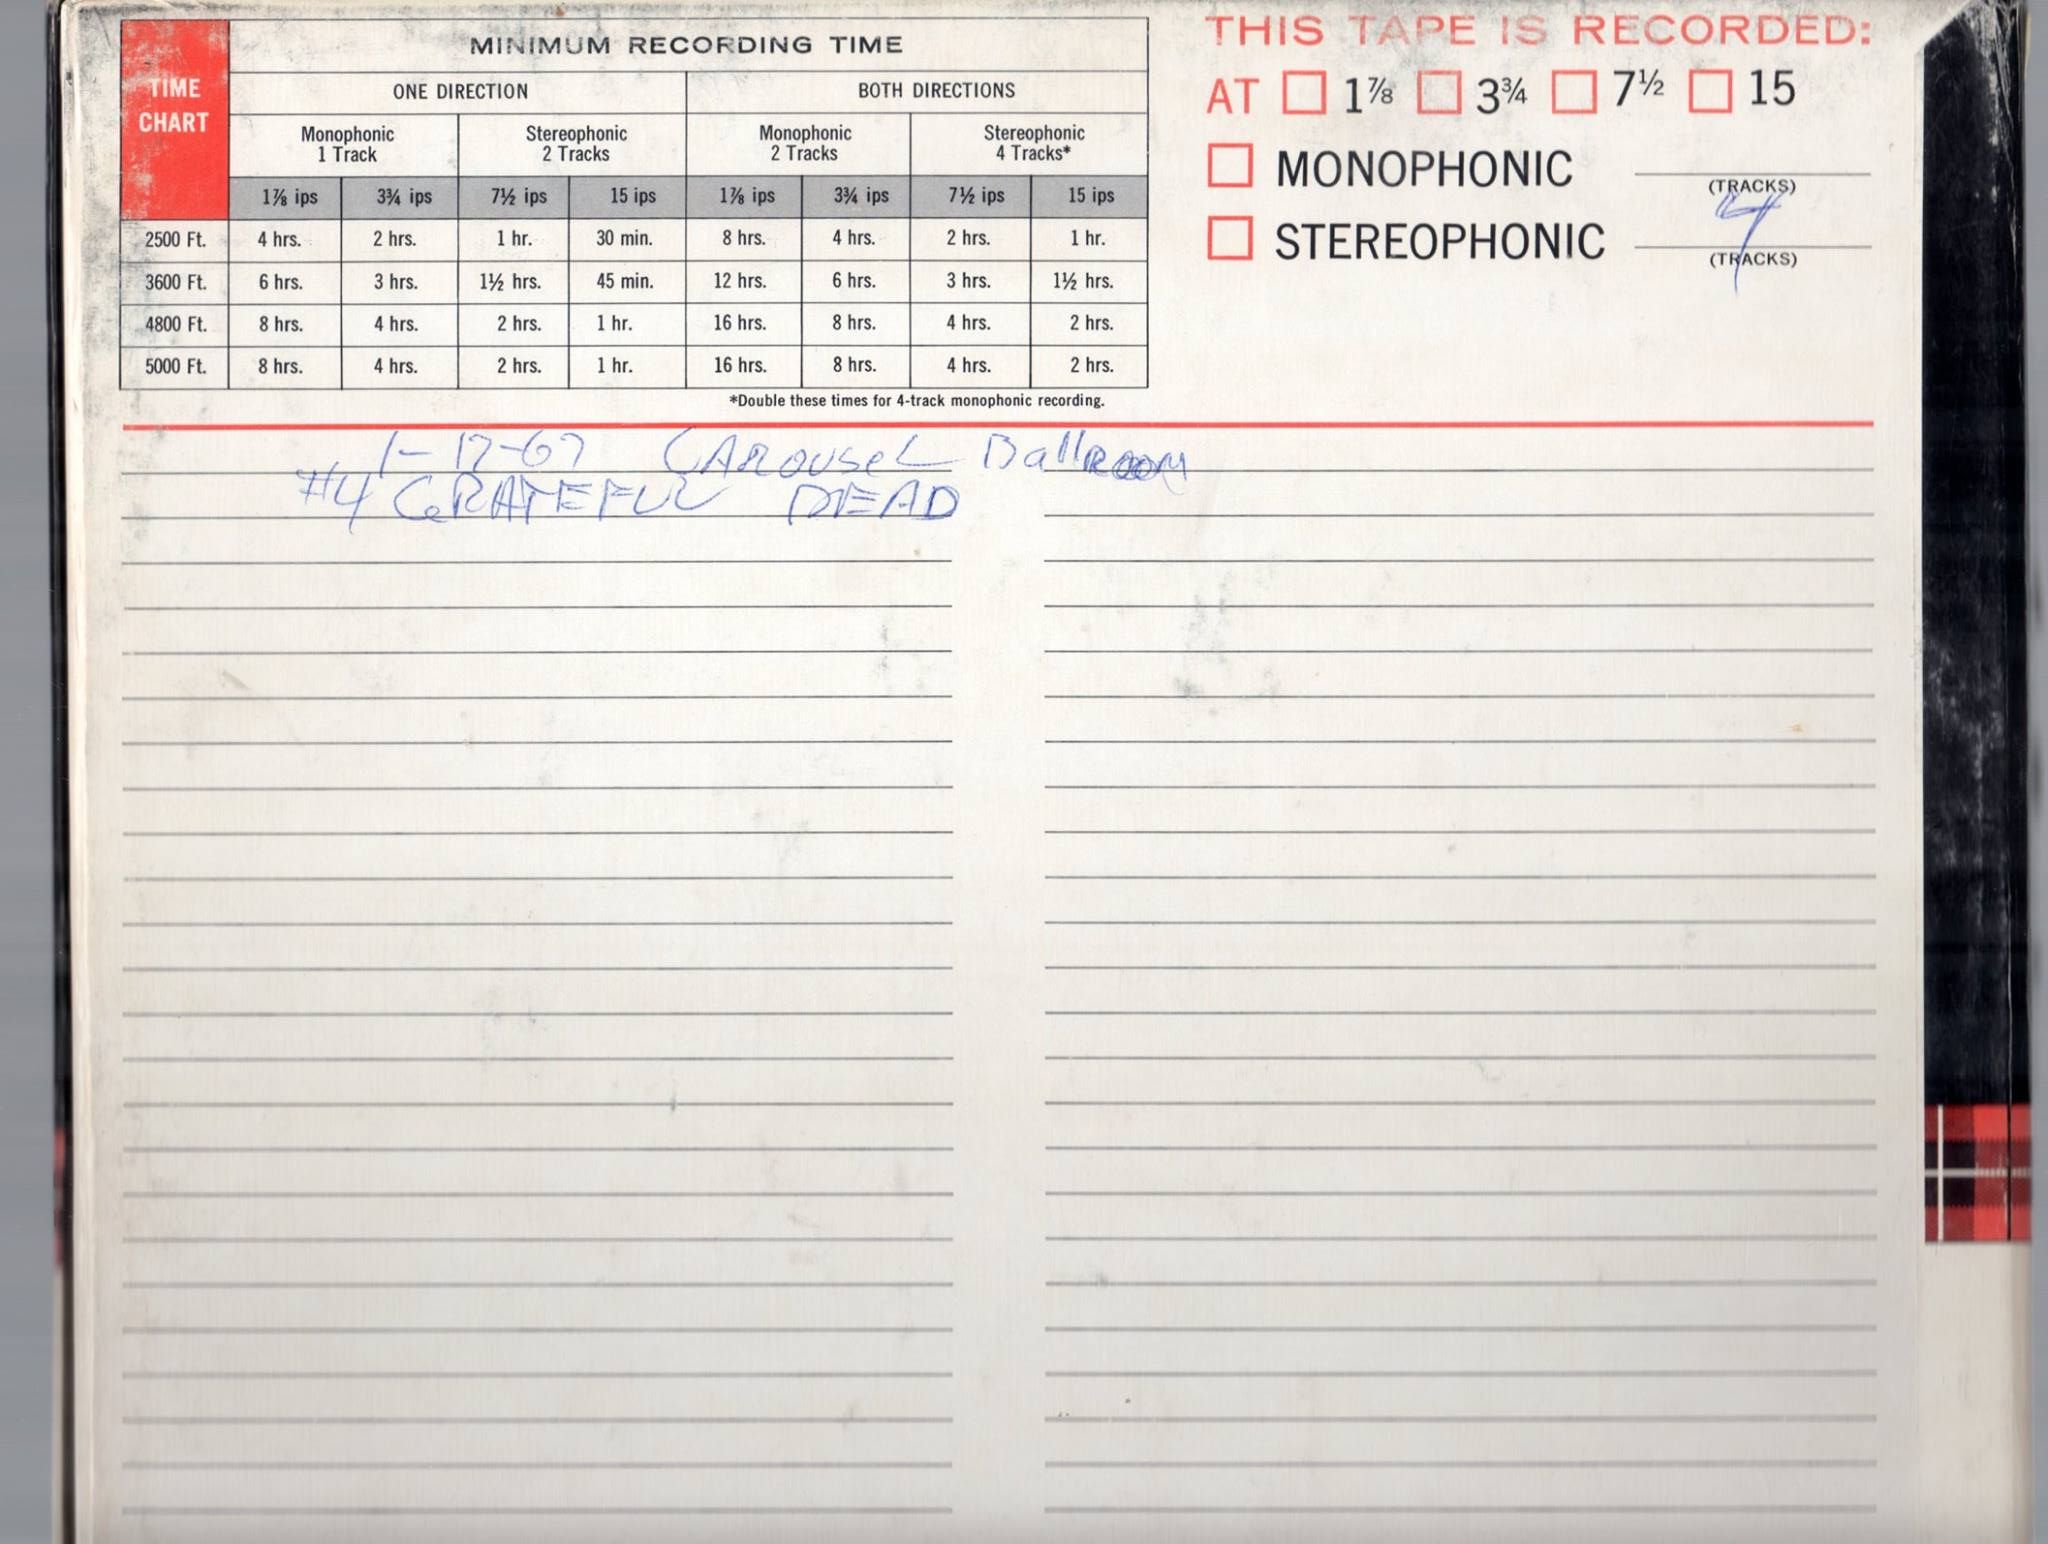 TIME CHART
MINIMUM RECORDING TIME
ONE DIRECTION BOTH DIRECTIONS
Monophonic 1 Track Stereophonic 2 Tracks Monophonic 2 Tracks Stereophonic 4 Tracks*
1⅞ ips 3¾ ips 7½ ips 15 ips 1⅞ ips 3¾ ips 7½ ips 15 ips
2500 Ft. 4 hrs. 2 hrs. 1 hr. 30 min. 8 hrs. 4 hrs. 2 hrs. 1 hr.
3600 Ft. 6 hrs. 3 hrs. 1½ hrs. 45 min. 12 hrs. 6 hrs. 3 hrs. 1½ hrs.
4800 Ft. 8 hrs. 4 hrs. 2 hrs. 1 hr. 16 hrs. 8 hrs. 4 hrs. 2 hrs.
5000 Ft. 8 hrs. 4 hrs. 2 hrs. 1 hr. 16 hrs. 8 hrs. 4 hrs. 2 hrs.
*Double these times for 4-track monophonic recording.
THIS TAPE IS RECORDED:
AT 1⅞ 3¾ 7½ 15
MONOPHONIC (TRACKS)
STEREOPHONIC 4 (TRACKS)
1-17-67 CAROUSEL BallROOM
#4 GRATEFUL DEAD